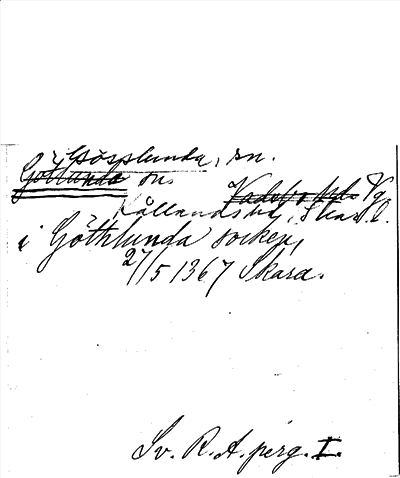 Gösslunda, sn.
Götlunda sn. Wadsbo hd. Vg
Kållandsö hd, Skar. l.
i Göthlunda socken,
27/5 1367 Skara.
Sv. R. A. perg. I.